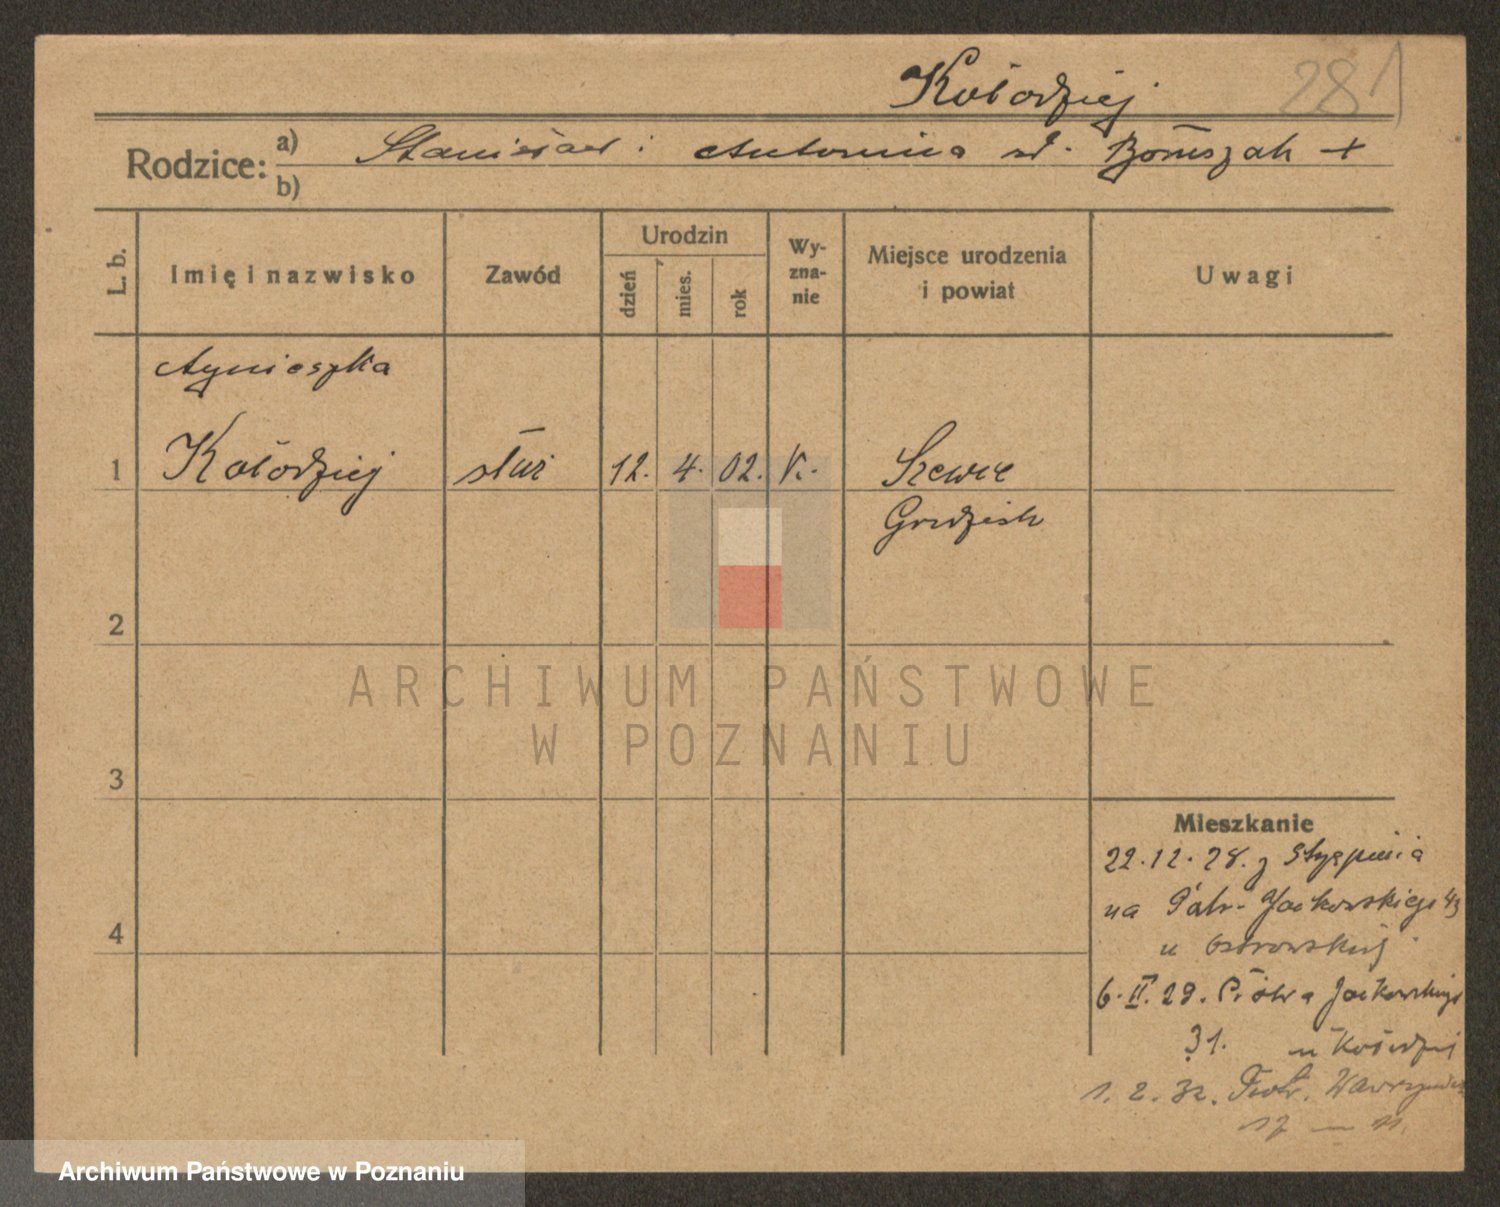 Kołodziej 281
Rodzice: a) Stanisław i Antonina zd. +
b)
L. b. Imię i nazwisko Zawód Urodzin dzień mies. rok Wy-zna-nie Miejsce urodzenia i powiat Uwagi
Agnieszka
1 Kołodziej służ 12. 4. 02. k. Szewce
Grodzisk
2
ARCHIWUM PAŃSTWOWE
W POZNANIU
3
Mieszkanie
22.12.28. z
na Patr. Jackowskiego 43
4
u Ostrowskiej
6.II.29. Patr. Jackowskiego
31. u Kołodziej
1.2.32.
17 — 11.
Archiwum Państwowe w Poznaniu